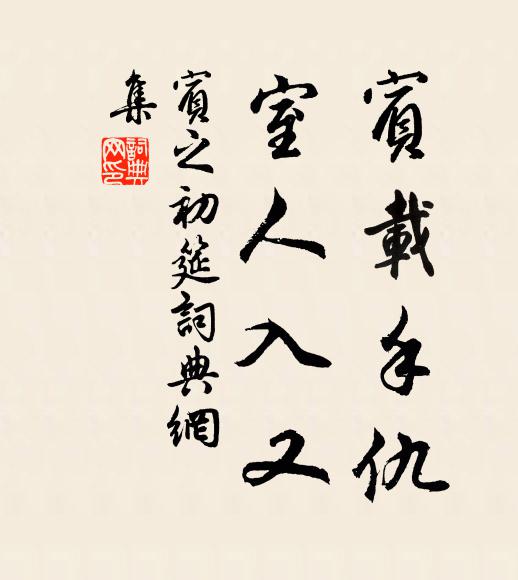 賓載手仇
室人入又
賓之初筵詞典網
集
詞典網印